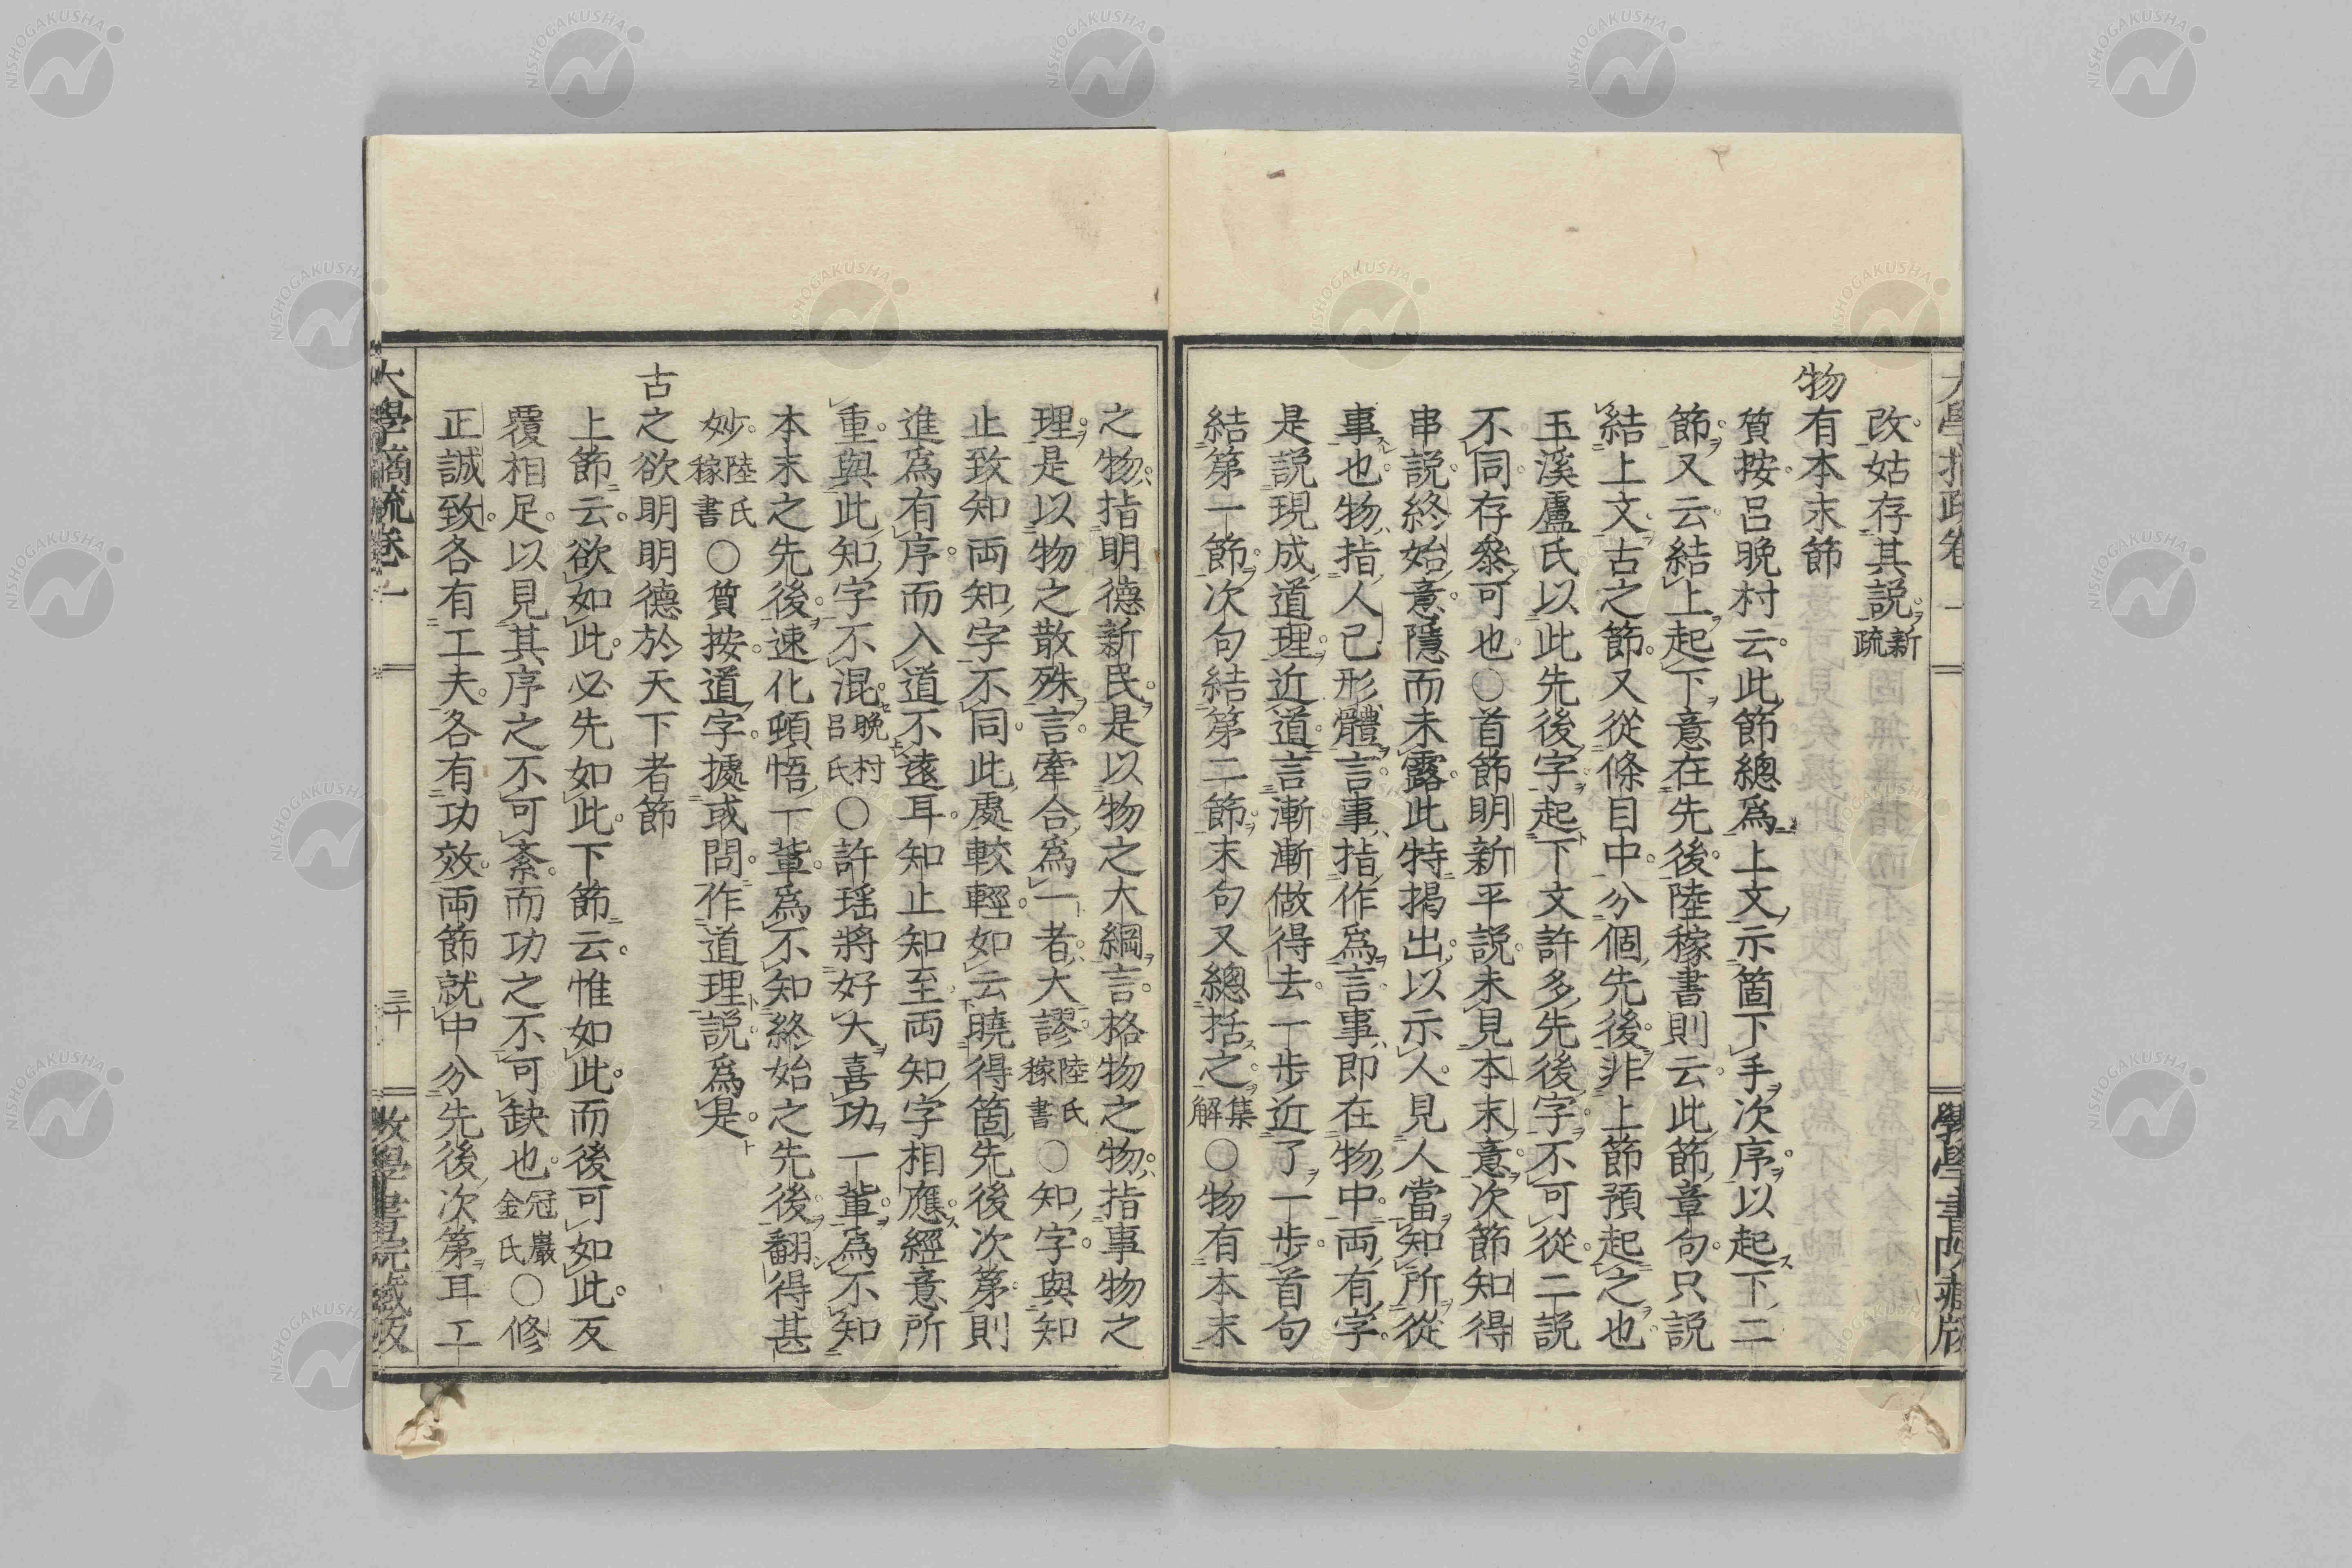 改姑存其説新疏
物有本末節
質按呂晩村云此節總爲上文示箇下手次序以起下二
節又云結上起下意在先後陸稼書則云此節章句只説
結上文古之節又從條目中分個先後非上節預起之也
玉溪盧氏以此先後字起下文許多先後字不可從二説
不同存叅可也○首節明新平説未見本末意次節知得
串説終始意隱而未露此特掲出以示人見人當知所從
事也物指人己形體言事指作爲言事即在物中両有字
是説現成道理近道言漸漸做得去一歩近了一歩首句
結第一節次句結第二節末句又總括之集解○物有本末
之物指明德新民是以物之大綱言格物之物指事物之
理是以物之散殊言牽合爲一者大謬陸氏稼書○知字與知
止致知両知字不同此處較輕如云曉得箇先後次第則
進爲有序而入道不遠耳知止知至両知字相應經意所
重與此知字不混晩村呂氏○許瑶將好大喜功一輩爲不知
本末之先後速化頓悟一輩爲不知終始之先後翻得甚
妙陸氏稼書○質按道字據或問作道理説爲是
古之欲明明德於天下者節
上節云欲如此必先如此下節云惟如此而後可如此反
覆相足以見其序之不可紊而功之不可缺也冠巖金氏○修
正誠致各有工夫各有功效両節就中分先後次第耳工
大學摘疏卷一
三十